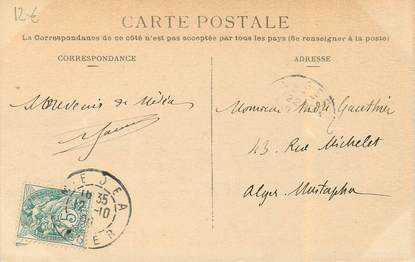 12€
CARTE POSTALE
La Correspondance de ce côté n'est pas acceptée par tous les pays (Se renseigner à la poste)
CORRESPONDANCE
ADRESSE
Souvenir de Médéa
Monsieur Gauthier
43 Rue Michelet
Alger-Mustapha
35
12 -10
5